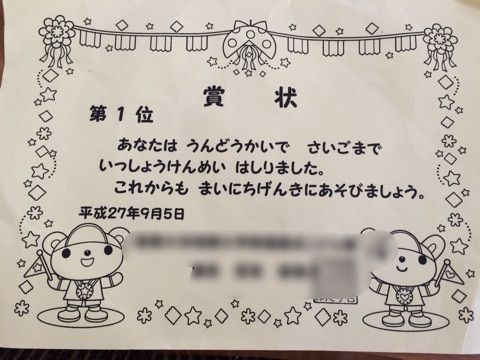 賞 状
第１位
あなたは うんどうかいで さいごまで
いっしょうけんめい はしりました。
これからも まいにちげんきにあそびましょう。
平成27年9月5日